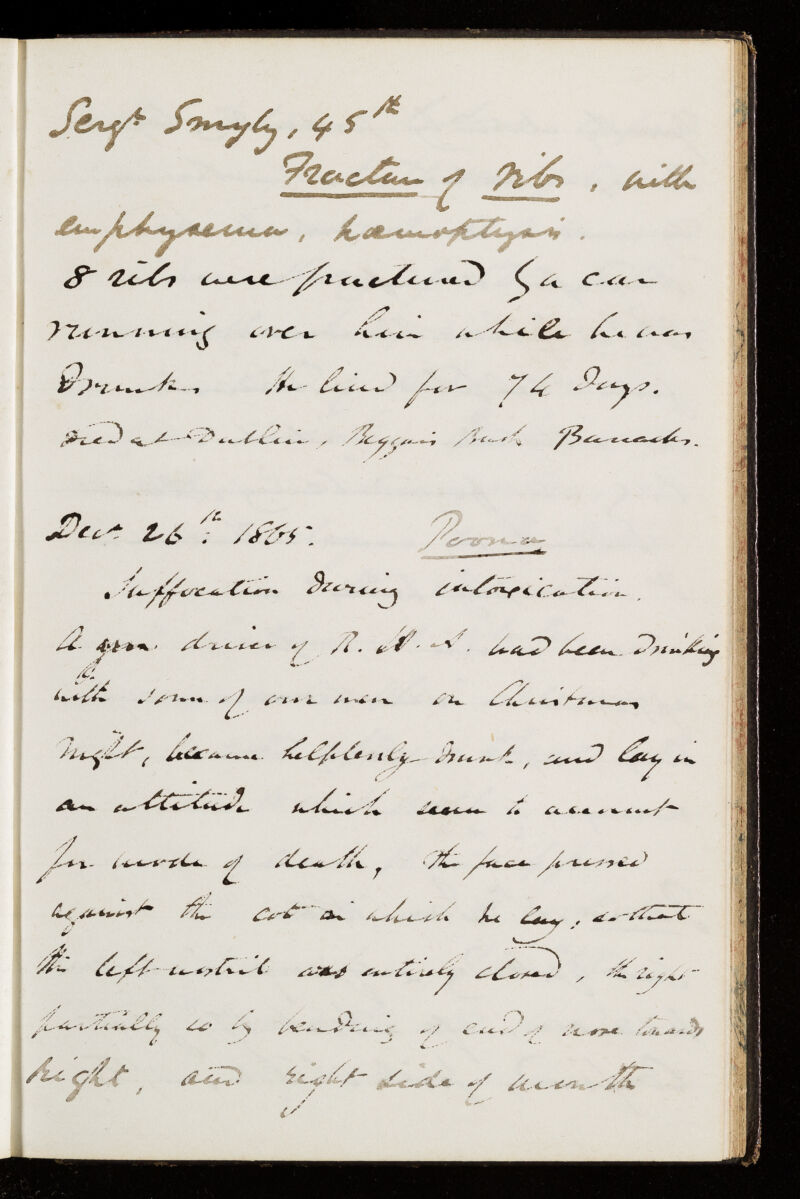 Sergt Smyly, 45th
Fracture of ribs, with
emphysema, hæmoptysis.
8 ribs were fractured by a car
running over him while he was
drunk. He lived for 74 days.
Died at Dublin, Beggars Bush Barracks.
Decr 26th. 1865. Poona
Suffocation during intoxication.
A gun driver of R. H. A. had been drinking
with some of our men on Christmas
night, became helplessly drunk, and lay in
an attitude which seem to account
for mode of death, the face pressed
against the cot on which he lay, so that
the left nostril was entirely closed, the right
partially so by bending of end of nose towards
right, and right side of mouth